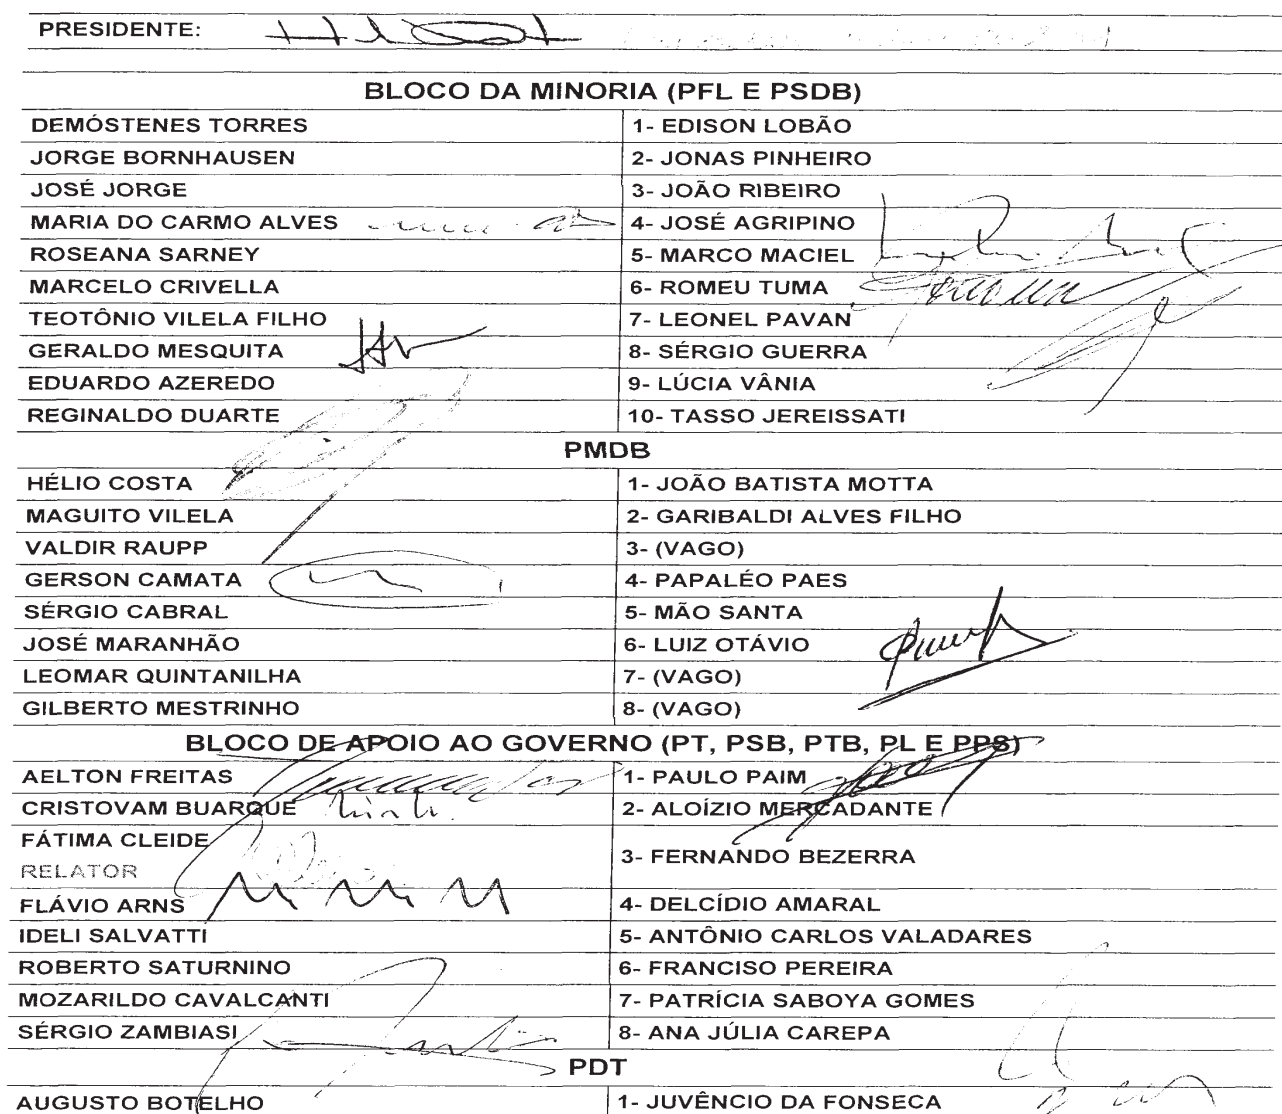 PRESIDENTE:
BLOCO DA MINORIA (PFL E PSDB)
DEMÓSTENES TORRES 1- EDISON LOBÃO
JORGE BORNHAUSEN 2- JONAS PINHEIRO
JOSÉ JORGE 3- JOÃO RIBEIRO
MARIA DO CARMO ALVES 4- JOSÉ AGRIPINO
ROSEANA SARNEY 5- MARCO MACIEL
MARCELO CRIVELLA 6- ROMEU TUMA
TEOTÔNIO VILELA FILHO 7- LEONEL PAVAN
GERALDO MESQUITA 8- SÉRGIO GUERRA
EDUARDO AZEREDO 9- LÚCIA VÂNIA
REGINALDO DUARTE 10- TASSO JEREISSATI
PMDB
HÉLIO COSTA 1- JOÃO BATISTA MOTTA
MAGUITO VILELA 2- GARIBALDI ALVES FILHO
VALDIR RAUPP 3- (VAGO)
GERSON CAMATA 4- PAPALÉO PAES
SÉRGIO CABRAL 5- MÃO SANTA
JOSÉ MARANHÃO 6- LUIZ OTÁVIO
LEOMAR QUINTANILHA 7- (VAGO)
GILBERTO MESTRINHO 8- (VAGO)
BLOCO DE APOIO AO GOVERNO (PT, PSB, PTB, PL E PPS)
AELTON FREITAS 1- PAULO PAIM
CRISTOVAM BUARQUE 2- ALOÍZIO MERCADANTE
FÁTIMA CLEIDE
RELATOR 3- FERNANDO BEZERRA
FLÁVIO ARNS 4- DELCÍDIO AMARAL
IDELI SALVATTI 5- ANTÔNIO CARLOS VALADARES
ROBERTO SATURNINO 6- FRANCISO PEREIRA
MOZARILDO CAVALCANTI 7- PATRÍCIA SABOYA GOMES
SÉRGIO ZAMBIASI 8- ANA JÚLIA CAREPA
PDT
AUGUSTO BOTELHO 1- JUVÊNCIO DA FONSECA